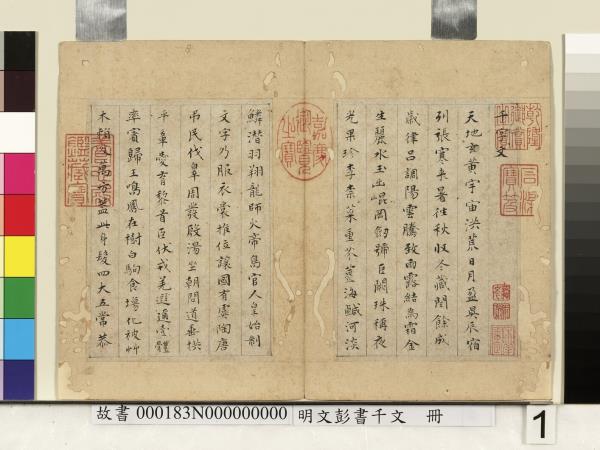 千字文
天地玄黃宇宙洪荒日月盈昃辰宿
列張寒來暑往秋收冬藏閏餘成
歲律呂調陽雲騰致雨露結為霜金
生麗水玉出崐岡劒號巨闕珠稱夜
光果珍李柰菜重芥薑海鹹河淡
鱗潛羽翔龍師火帝鳥官人皇始制
文字乃服衣裳推位讓國有虞陶唐
弔民伐辠周發殷湯坐朝問道垂拱
平章愛育黎首臣伏戎羌遐邇壹體
率賓歸王鳴鳳在樹白駒食場化被艸
木賴及萬方蓋此身髮四大五常恭
嘉慶御覽之寶
故書 000183N000000000 明文彭書千文 冊
1